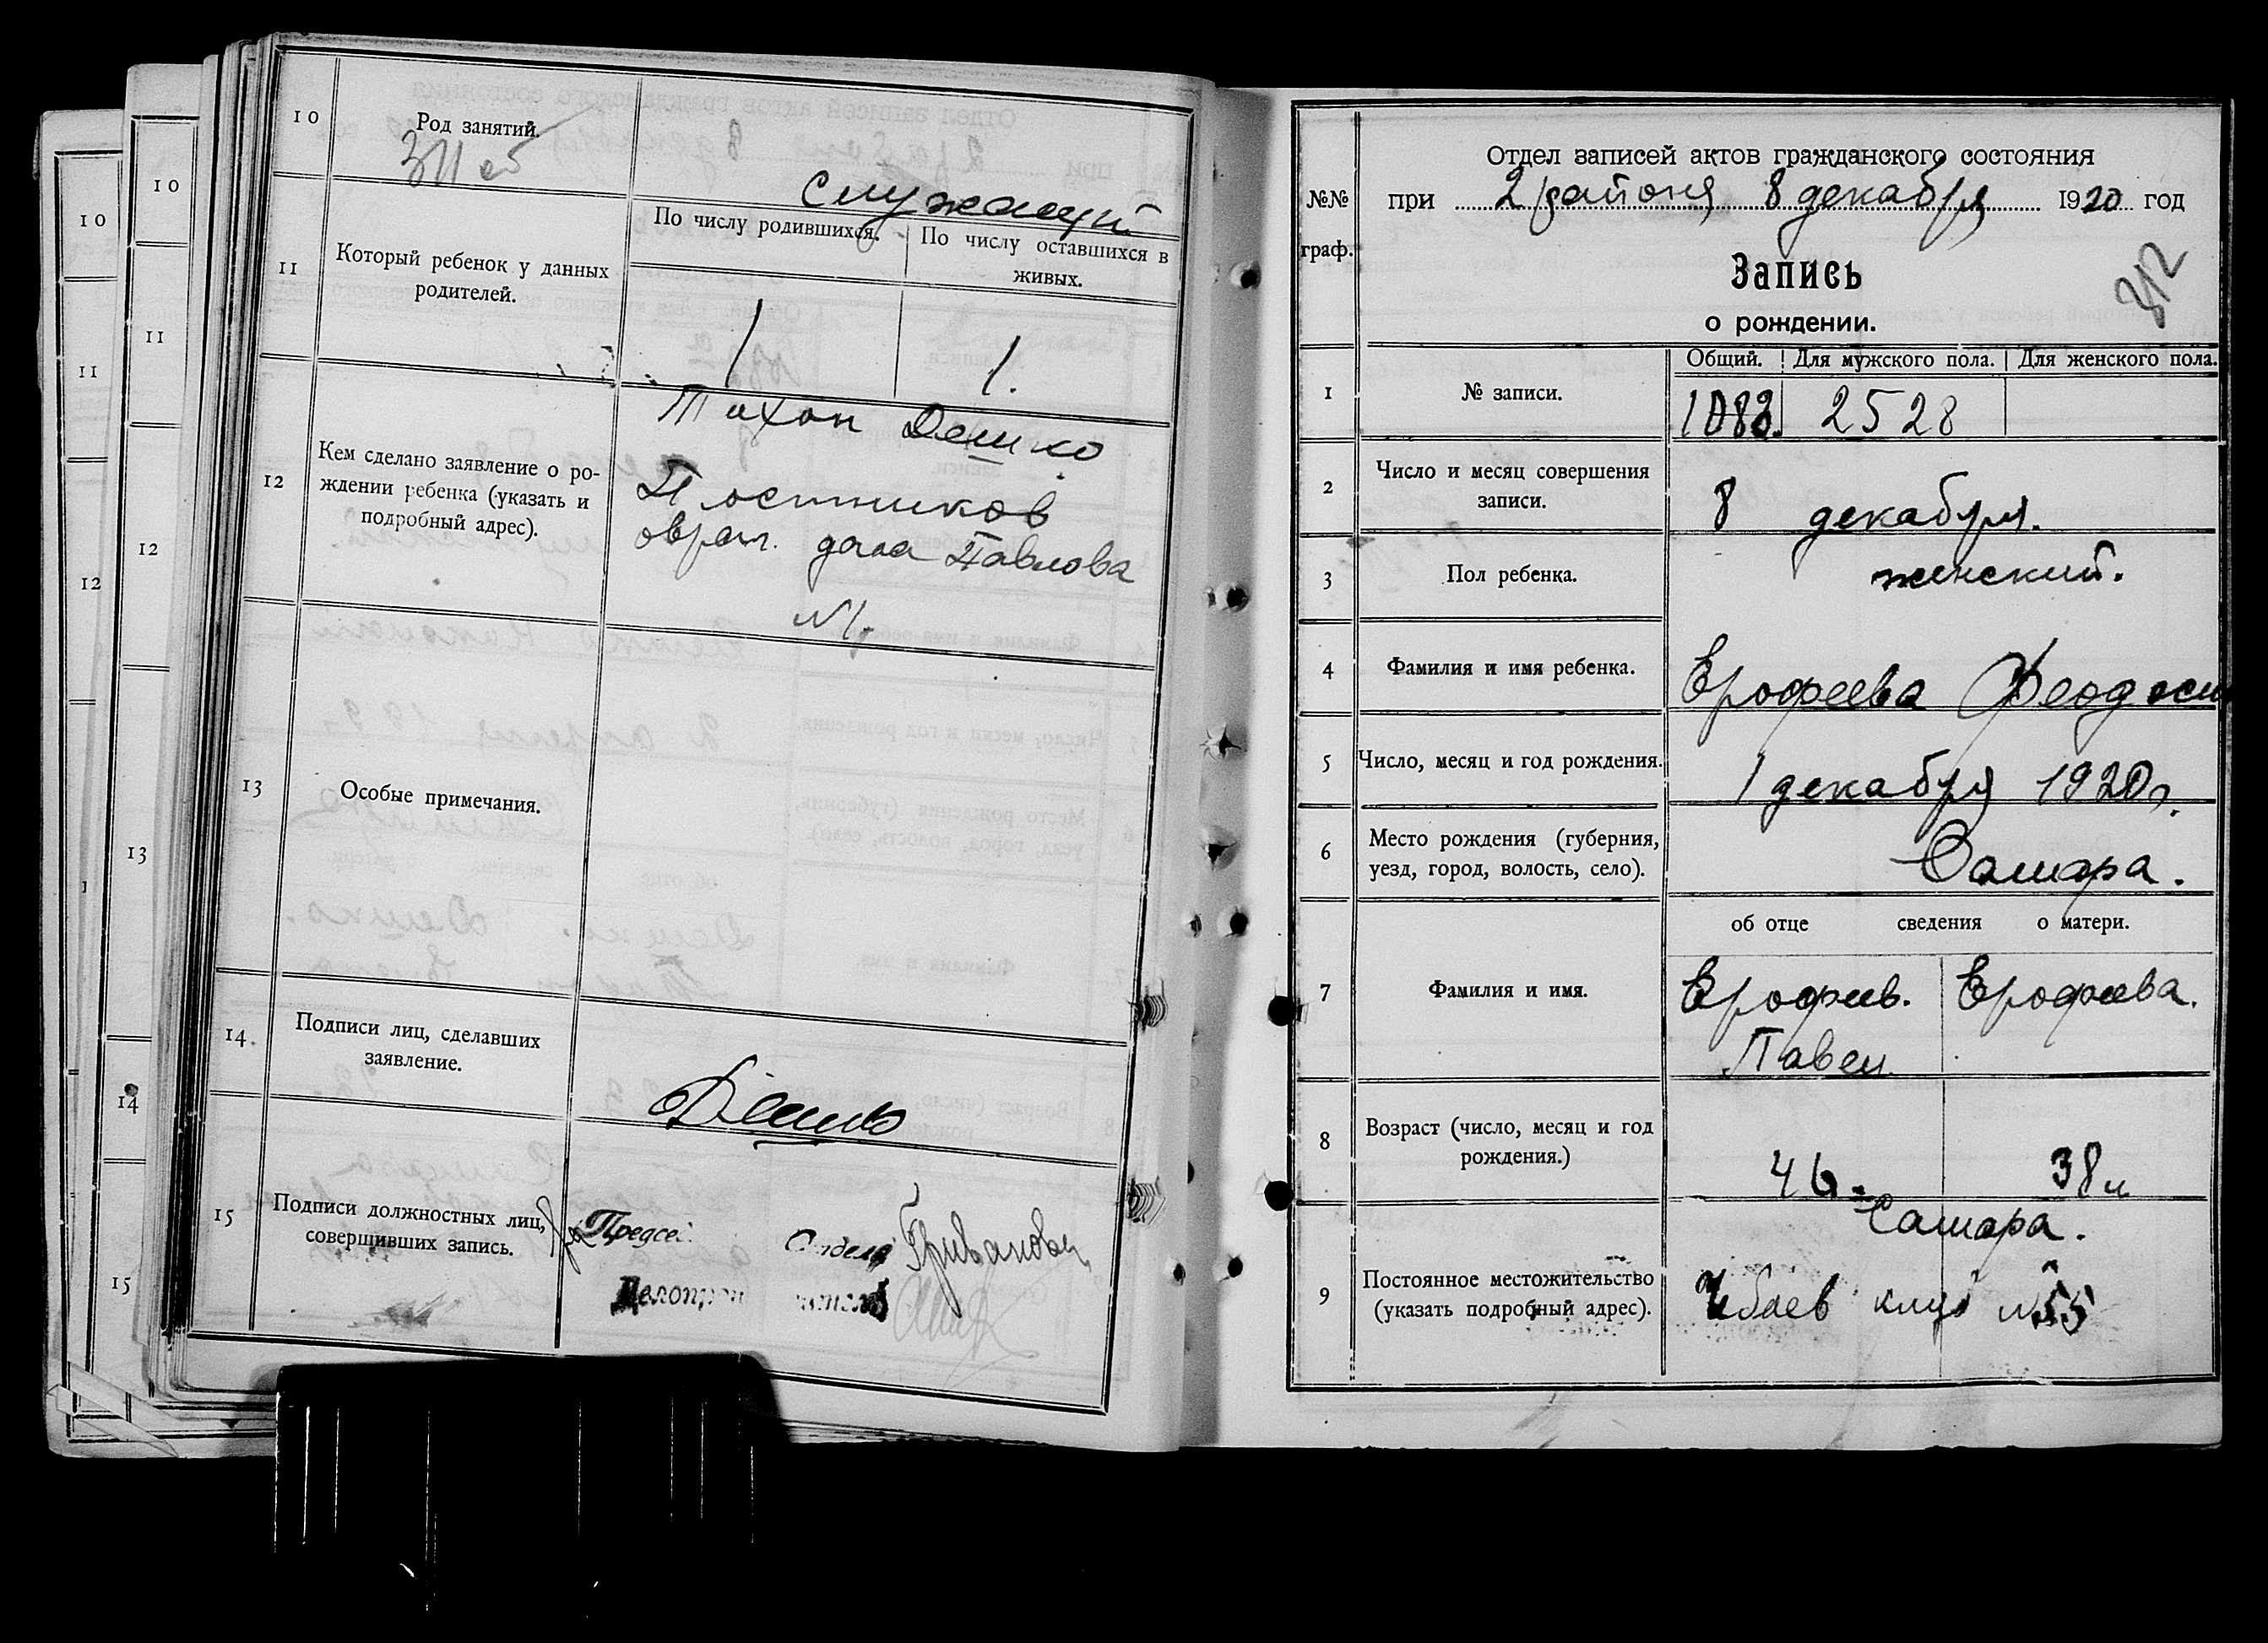 10
11
12
1
10
11
12
13
14
15
10
Род занятий.
Служащий
11
Который ребенок у данных
родителей.
По числу родившихся.
По числу оставшихся в
живых.
1
1.
12
Кем сделано заявление о ро-
ждении ребенка (указать и
подробный адрес).
Тихон Дешко
Постников
овраг. дача Павлова
№1.
13
Особые примечания.
14.
Подписи лиц, сделавших
заявление.
Дешко
15
Подписи должностных лиц,
совершивших запись.
Предсе
Отдела
Делопрои
№№
граф.
Отдел записей актов гражданского состояния
при 2 района 8 декабря 1920 год
Запись
о рождении.
312
1
№ записи.
Общий.
Для мужского пола.
Для женского пола.
1083.
2528
2
Число и месяц совершения
записи.
8 декабря.
3
Пол ребенка.
женский.
4
Фамилия и имя ребенка.
Ерофеева Феодоси
5
Число, месяц и год рождения.
1 декабря 1920г.
6
Место рождения (губерния,
уезд, город, волость, село).
Самара.
об отце
сведения
о матери.
7
Фамилия и имя.
Ерофеев.
Павел
Ерофеева.
8
Возраст (число, месяц и год
рождения.)
46
38
9
Постоянное местожительство
(указать подробный адрес).
Самара.
№55